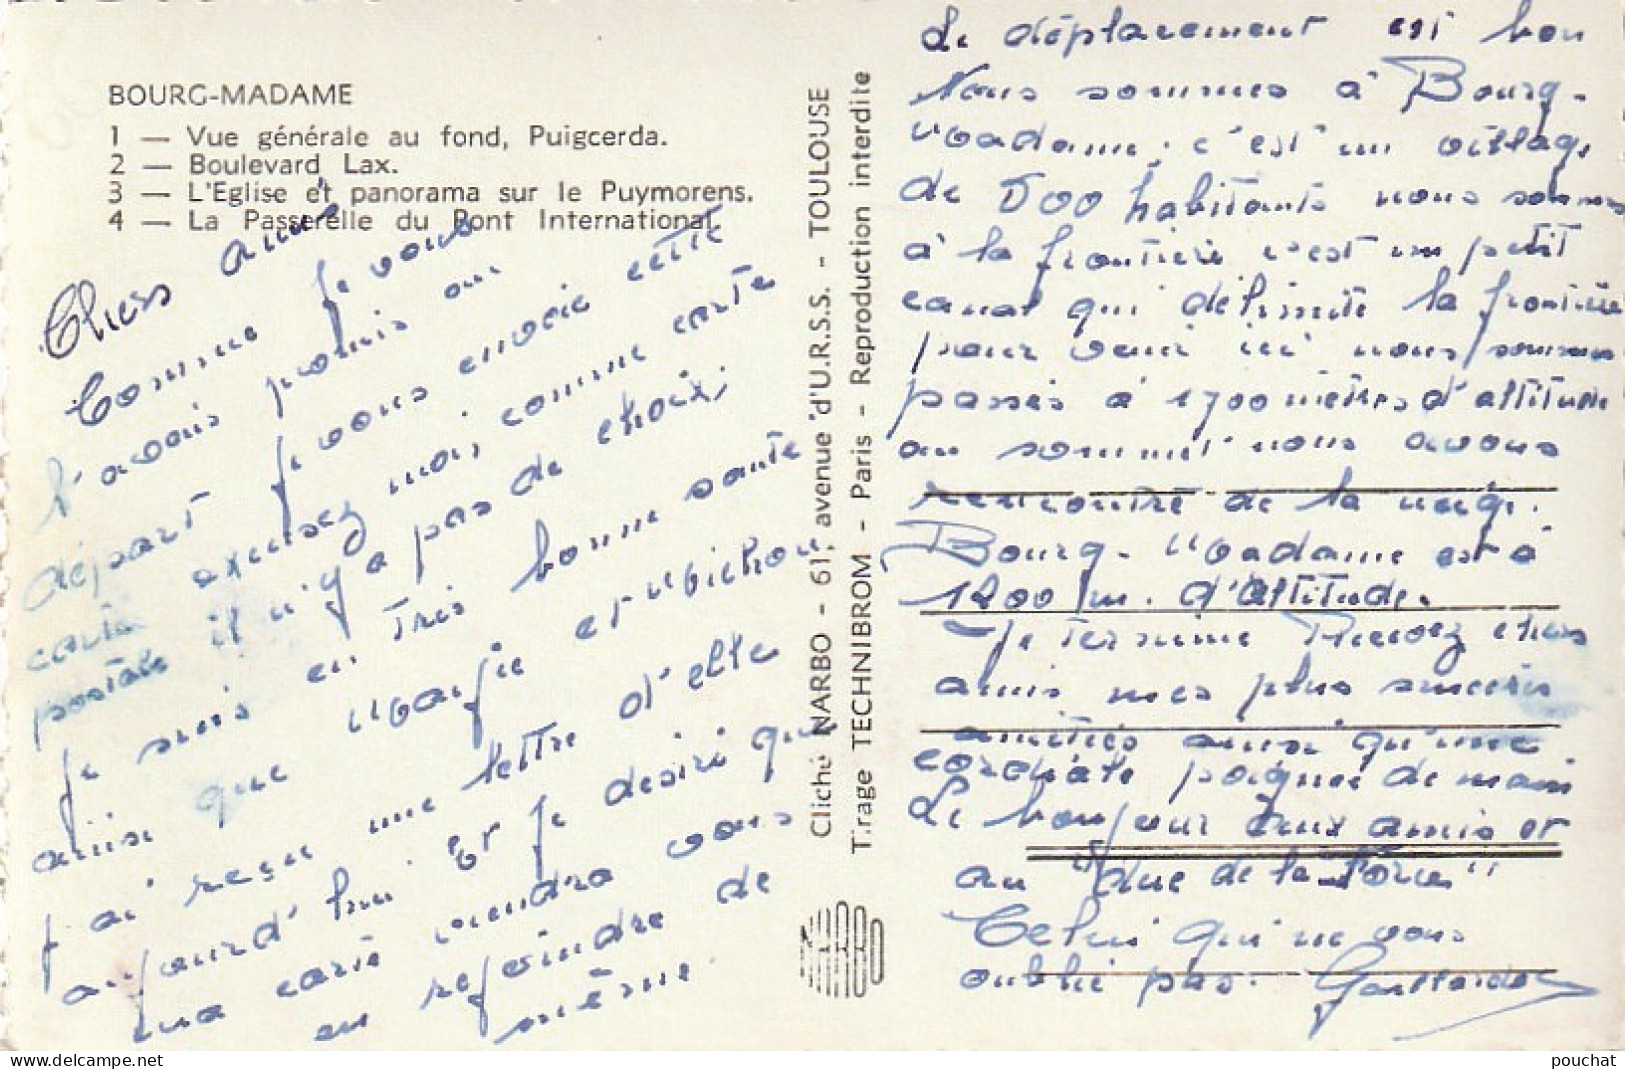 BOURG-MADAME
1 — Vue générale au fond, Puigcerda.
2 — Boulevard Lax.
3 — L'Eglise et panorama sur le Puymorens.
4 — La Passerelle du Pont International.
Chers amis
Comme je vous
l'avais promis au
départ je vous envoie cette
carte
postale excusez moi, comme carte
il n'y a pas de choix,
je suis en très bonne santé
ainsi que et
j'ai reçu une lettre d'elle
aujourd'hui et je désire que
ma carte viendra vous
en rejoindre de
même.
Cliché NARBO - 61, avenue d'U.R.S.S. - TOULOUSE
Tirage TECHNIBROM - Paris - Reproduction interdite
Le déplacement est bon
Nous sommes à Bourg-
Madame, c'est un village
de 500 habitants nous sommes
à la frontière c'est un petit
canal qui délimite la frontière
pour venir ici nous sommes
passés à 1700 mètres d'altitude
au sommet nous avons
rencontré de la neige.
Bourg-Madame est à
1200 m. d'Altitude.
Je termine Recevez chers
amis mes plus sincères
amitiés ainsi qu'une
cordiale poignée de main
Le bonjour aux amis et
au "duc de la Force"
Celui qui ne vous
oublie pas.
pouchat